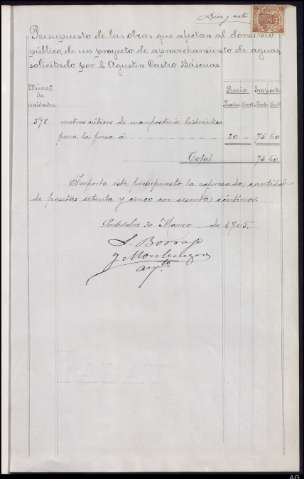 Presupuesto de las obras que afectan al dominio
público, de un proyecto de aprovechamiento de aguas
solicitado por D. Agustin Castro Bárcenas
Número de unidades
Precio
Importe
metros cúbicos de mampostería hidráulica
para la presa á 20
Total
Importa este presupuesto la expresada cantidad
de pesetas setenta y cinco con sesenta céntimos.
30 Marzo de 1905.